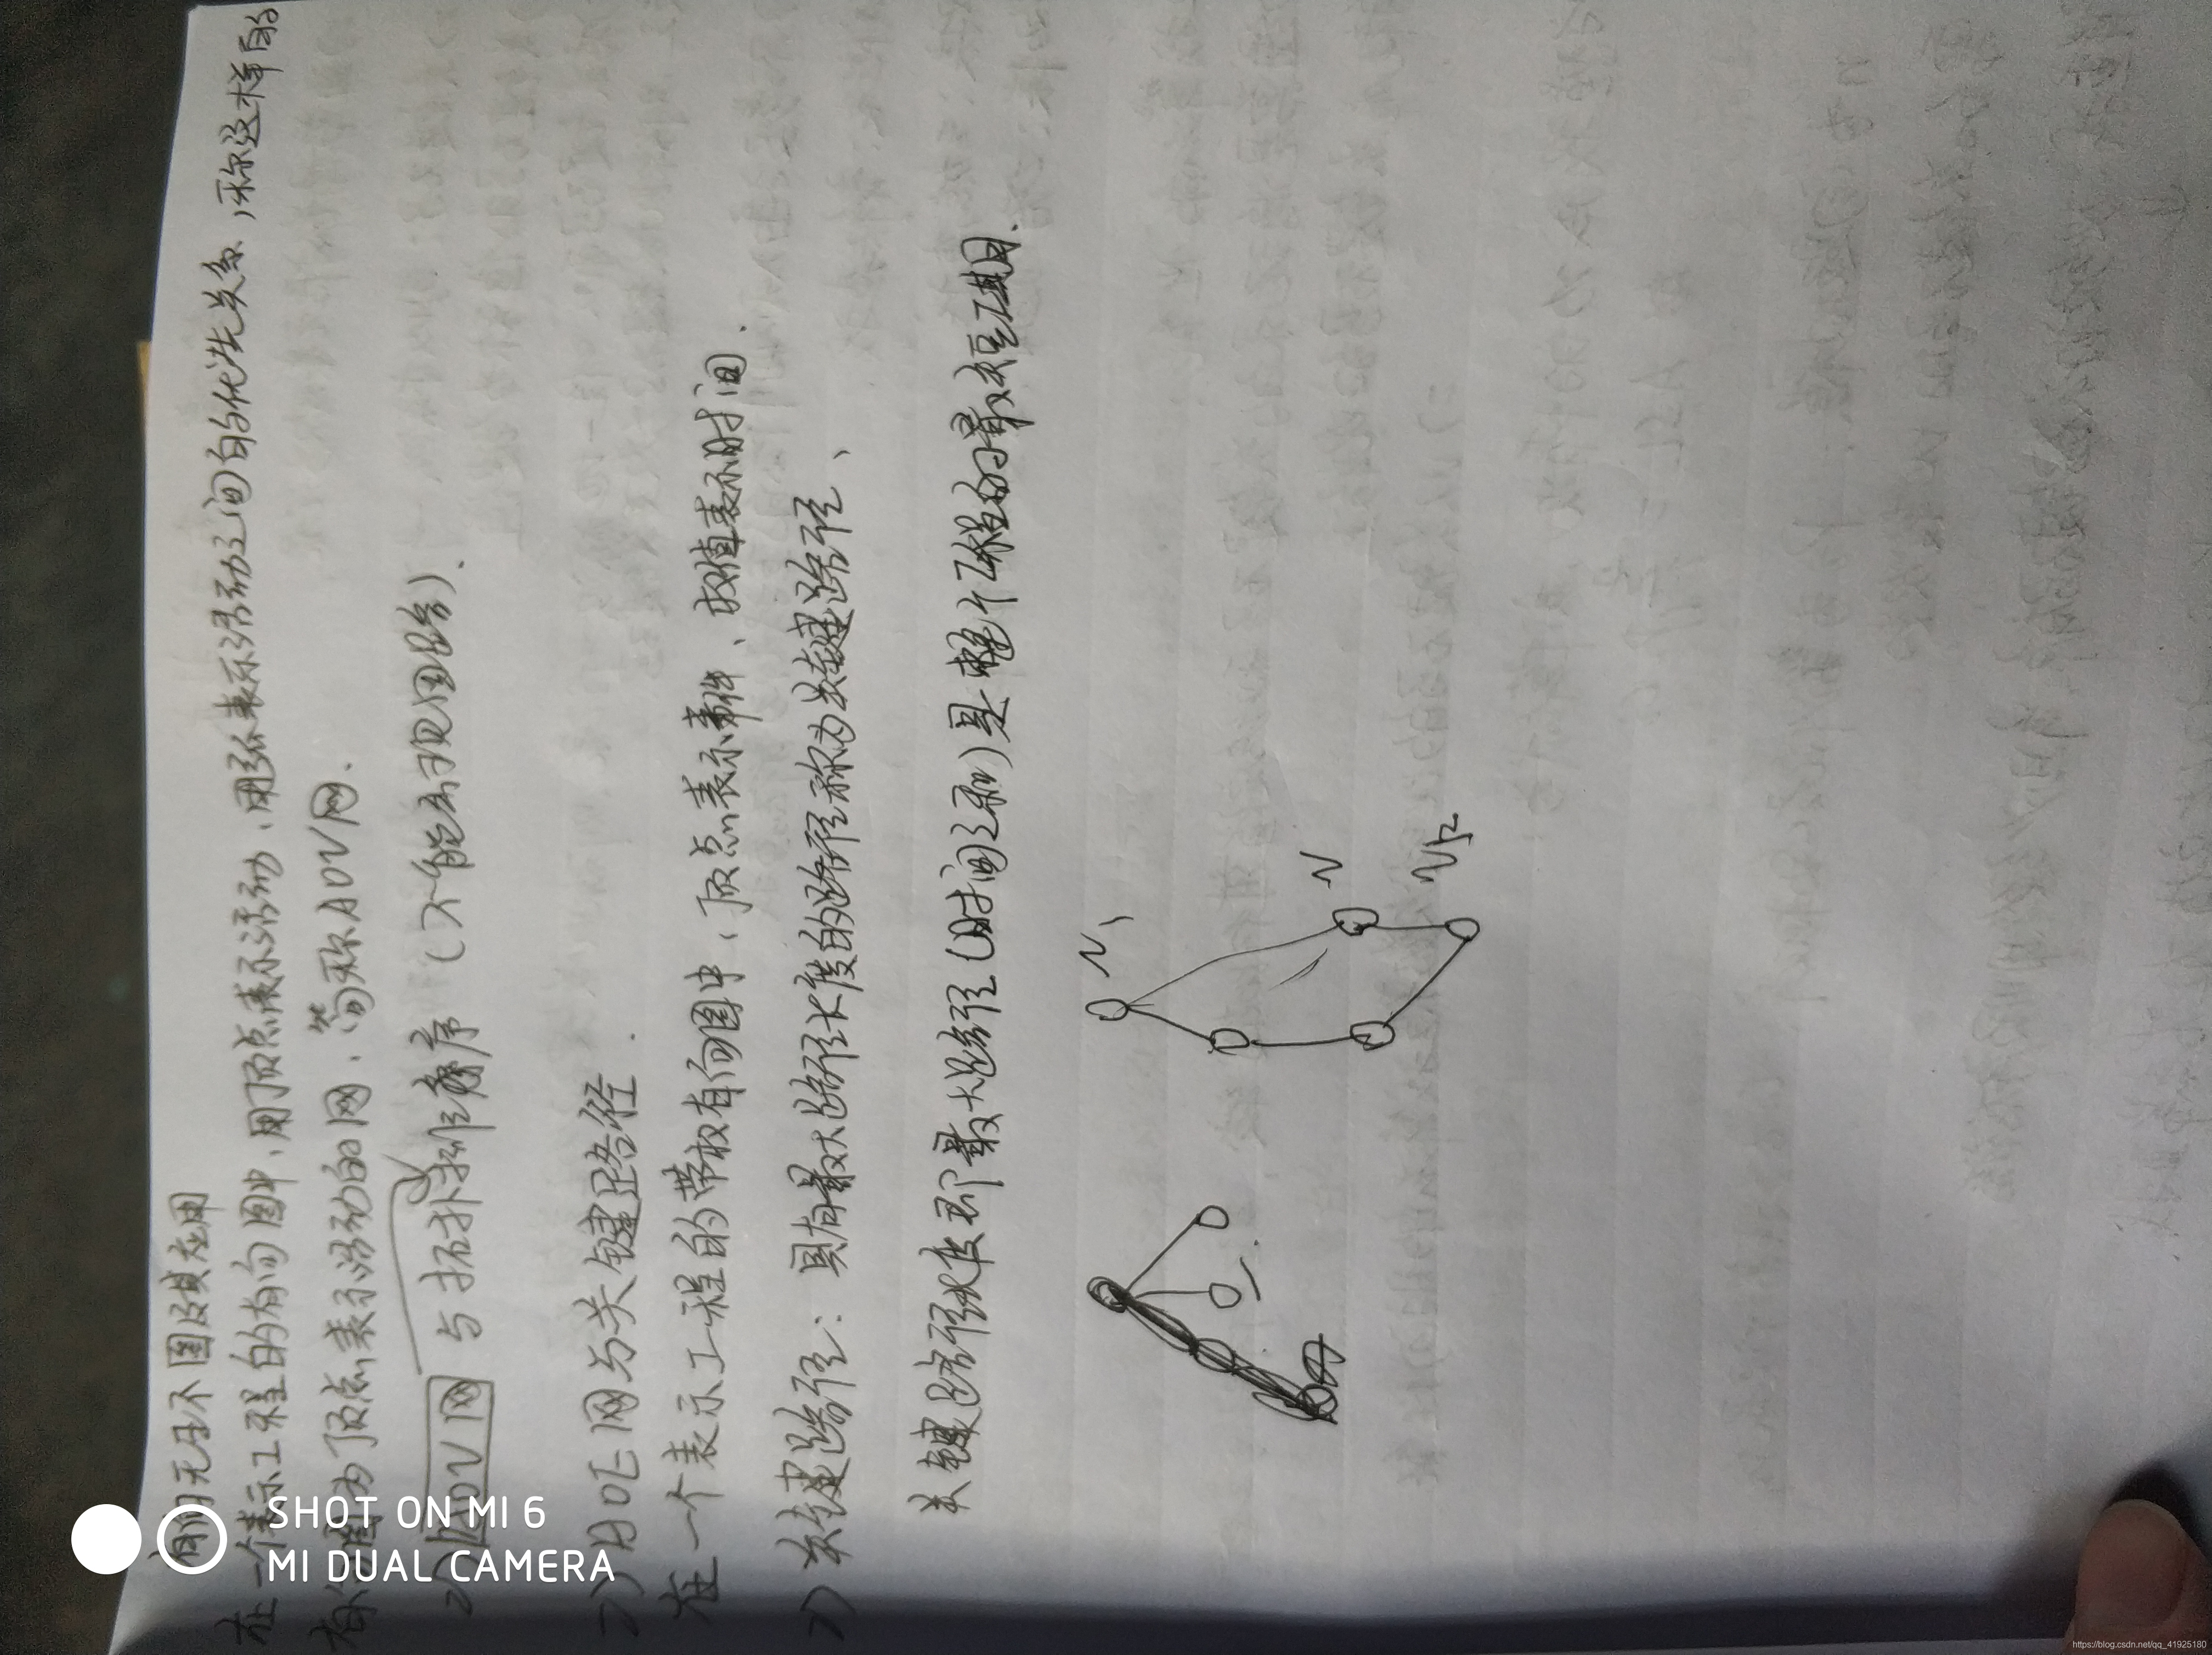 有向无环图及其应用
在一个表示工程的有向图中,用顶点表示活动,用弧表示活动之间的优先关系,称这样的
有向图为顶点表示活动的网,简称AOV网.
2) AOV网 与拓扑排序 (不能出现回路).
2) AOE网与关键路径.
在一个表示工程的带权有向图中,顶点表示事件,权值表示时间.
2) 关键路径: 具有最大路径长度的路径称为关键路径、
关键路径长度即最大路径(时间之和)是整个工程的最短工期.
V1
V
SHOT ON MI 6
MI DUAL CAMERA
https://blog.csdn.net/qq_41925180